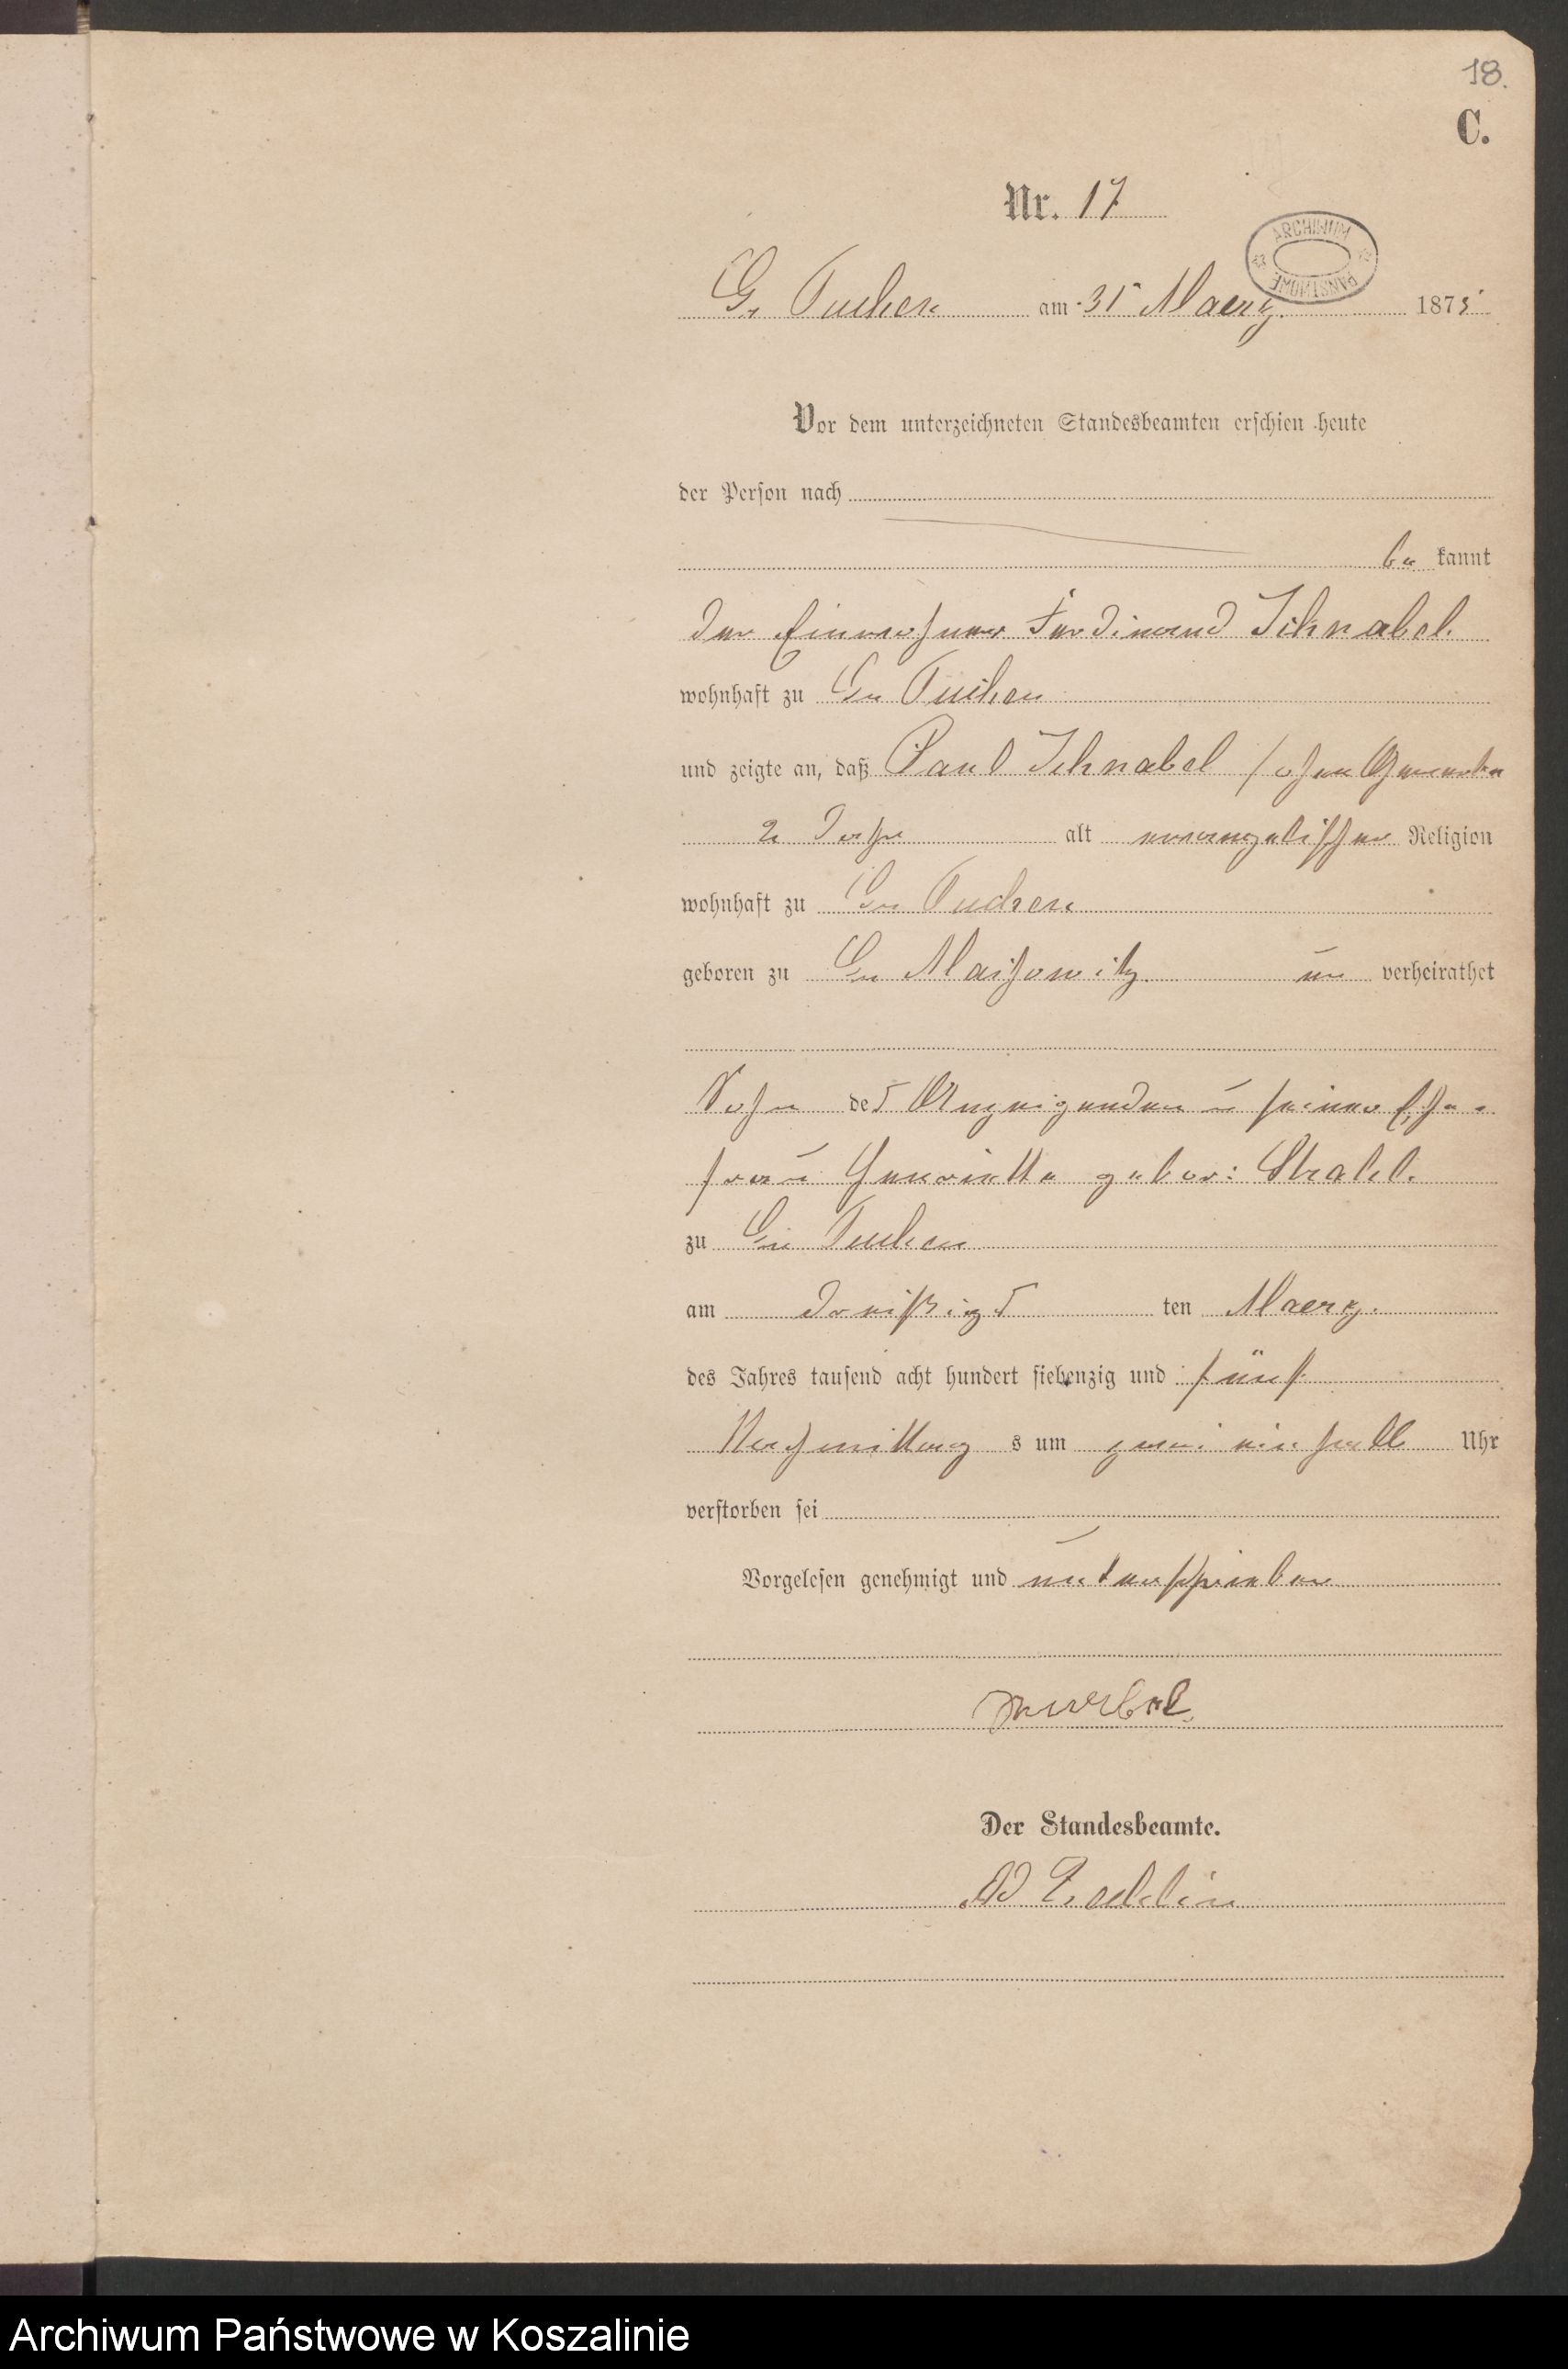 18.
C.
Nr. 17
ARCHIWUM PAŃSTWOWE
Gr Tuchen am 31 Maerz. 1875
Vor dem unterzeichneten Standesbeamten erschien heute
der Person nach
be kannt
der Einwohner Ferdinand Schnabel.
wohnhaft zu Gr Tuchen
und zeigte an, daß Paul Schnabel, ohne Gewerbe
2 Jahr alt evangelischer Religion
wohnhaft zu Gr Tuchen
geboren zu Gr un verheirathet
Sohn des Anzeigenden u seiner Ehe-
frau Henriette gebor:
zu Gr Tuchen
am dreißigs ten Maerz.
des Jahres tausend acht hundert siebenzig und fünf
Nachmittag s um zwei ein halb Uhr
verstorben sei
Vorgelesen genehmigt und unterschrieben
Schnabel.
Der Standesbeamte.
Archiwum Państwowe w Koszalinie